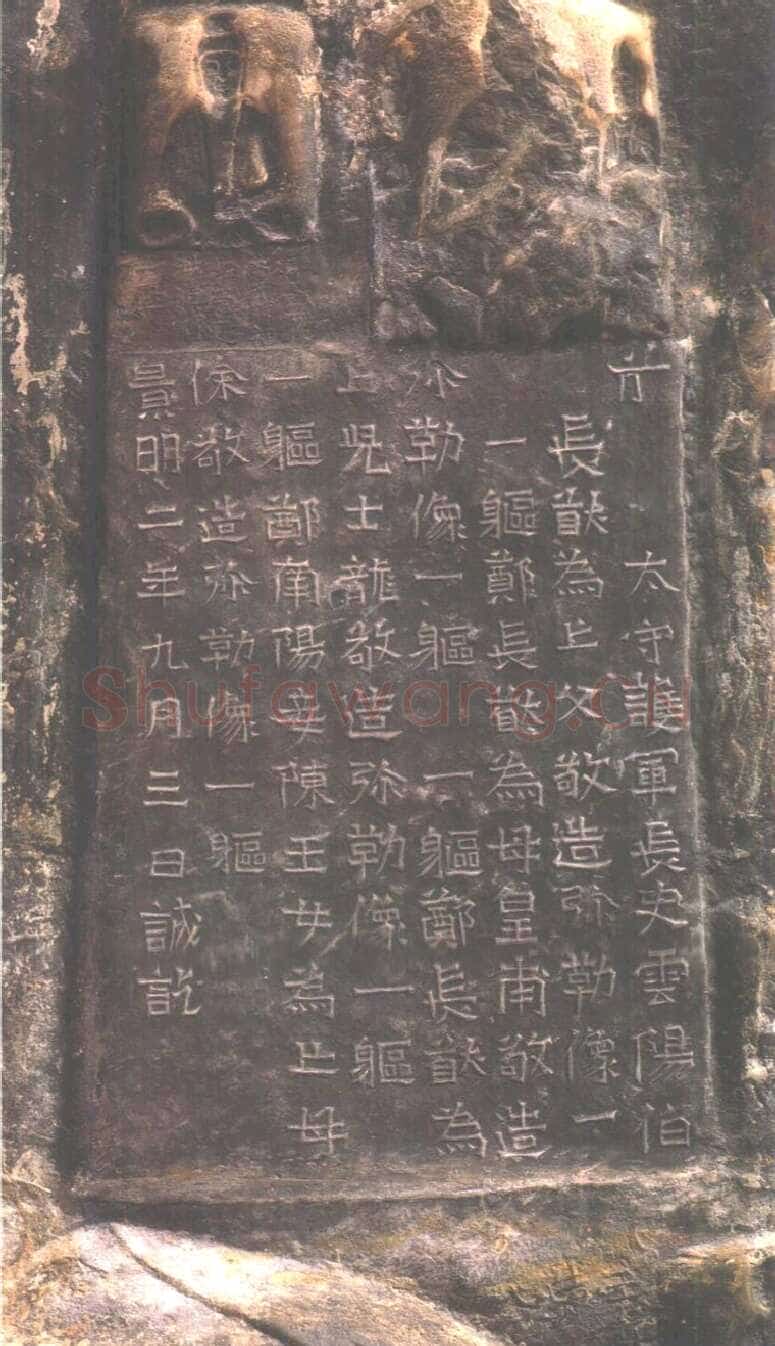 太守護軍長史雲陽伯
長猷為亡父敬造弥勒像一
一軀鄭長猷為母皇甫敬造
弥勒像一軀一軀鄭長猷為
亡兒士龍敬造弥勒像一軀
一軀鄭南陽妾陳玉女為亡母
徐敬造弥勒像一軀
景明二年九月三日誡訖
Shufawang.cn